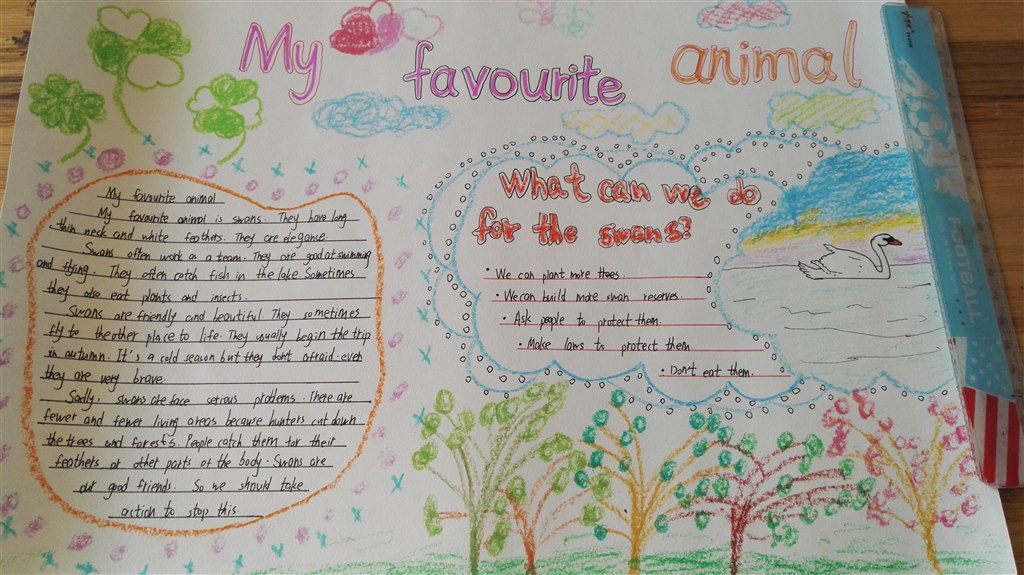 My favourite animal
My favourite animal
My favourite animal is swans. They have long
thin neck and white feathers. They are elegance.
Swans often work as a team. They are good at swimming
and flying. They often catch fish in the lake. Sometimes
they also eat plants and insects.
Swans are friendly and beautiful. They sometimes
fly to the other place to life. They usually begin the trip
in autumn. It's a cold season but they don't afraid. even
they are very brave.
Sadly, swans are face serious problems. There are
fewer and fewer living areas because hunters cut down
the trees and forests. People catch them for their
feathers or other parts of the body. Swans are
our good friends. So we should take
action to stop this.
What can we do
for the swans?
• We can plant more trees.
• We can build more swan reserves.
• Ask people to protect them.
• Make laws to protect them
• Don't eat them.
FOOTBALL